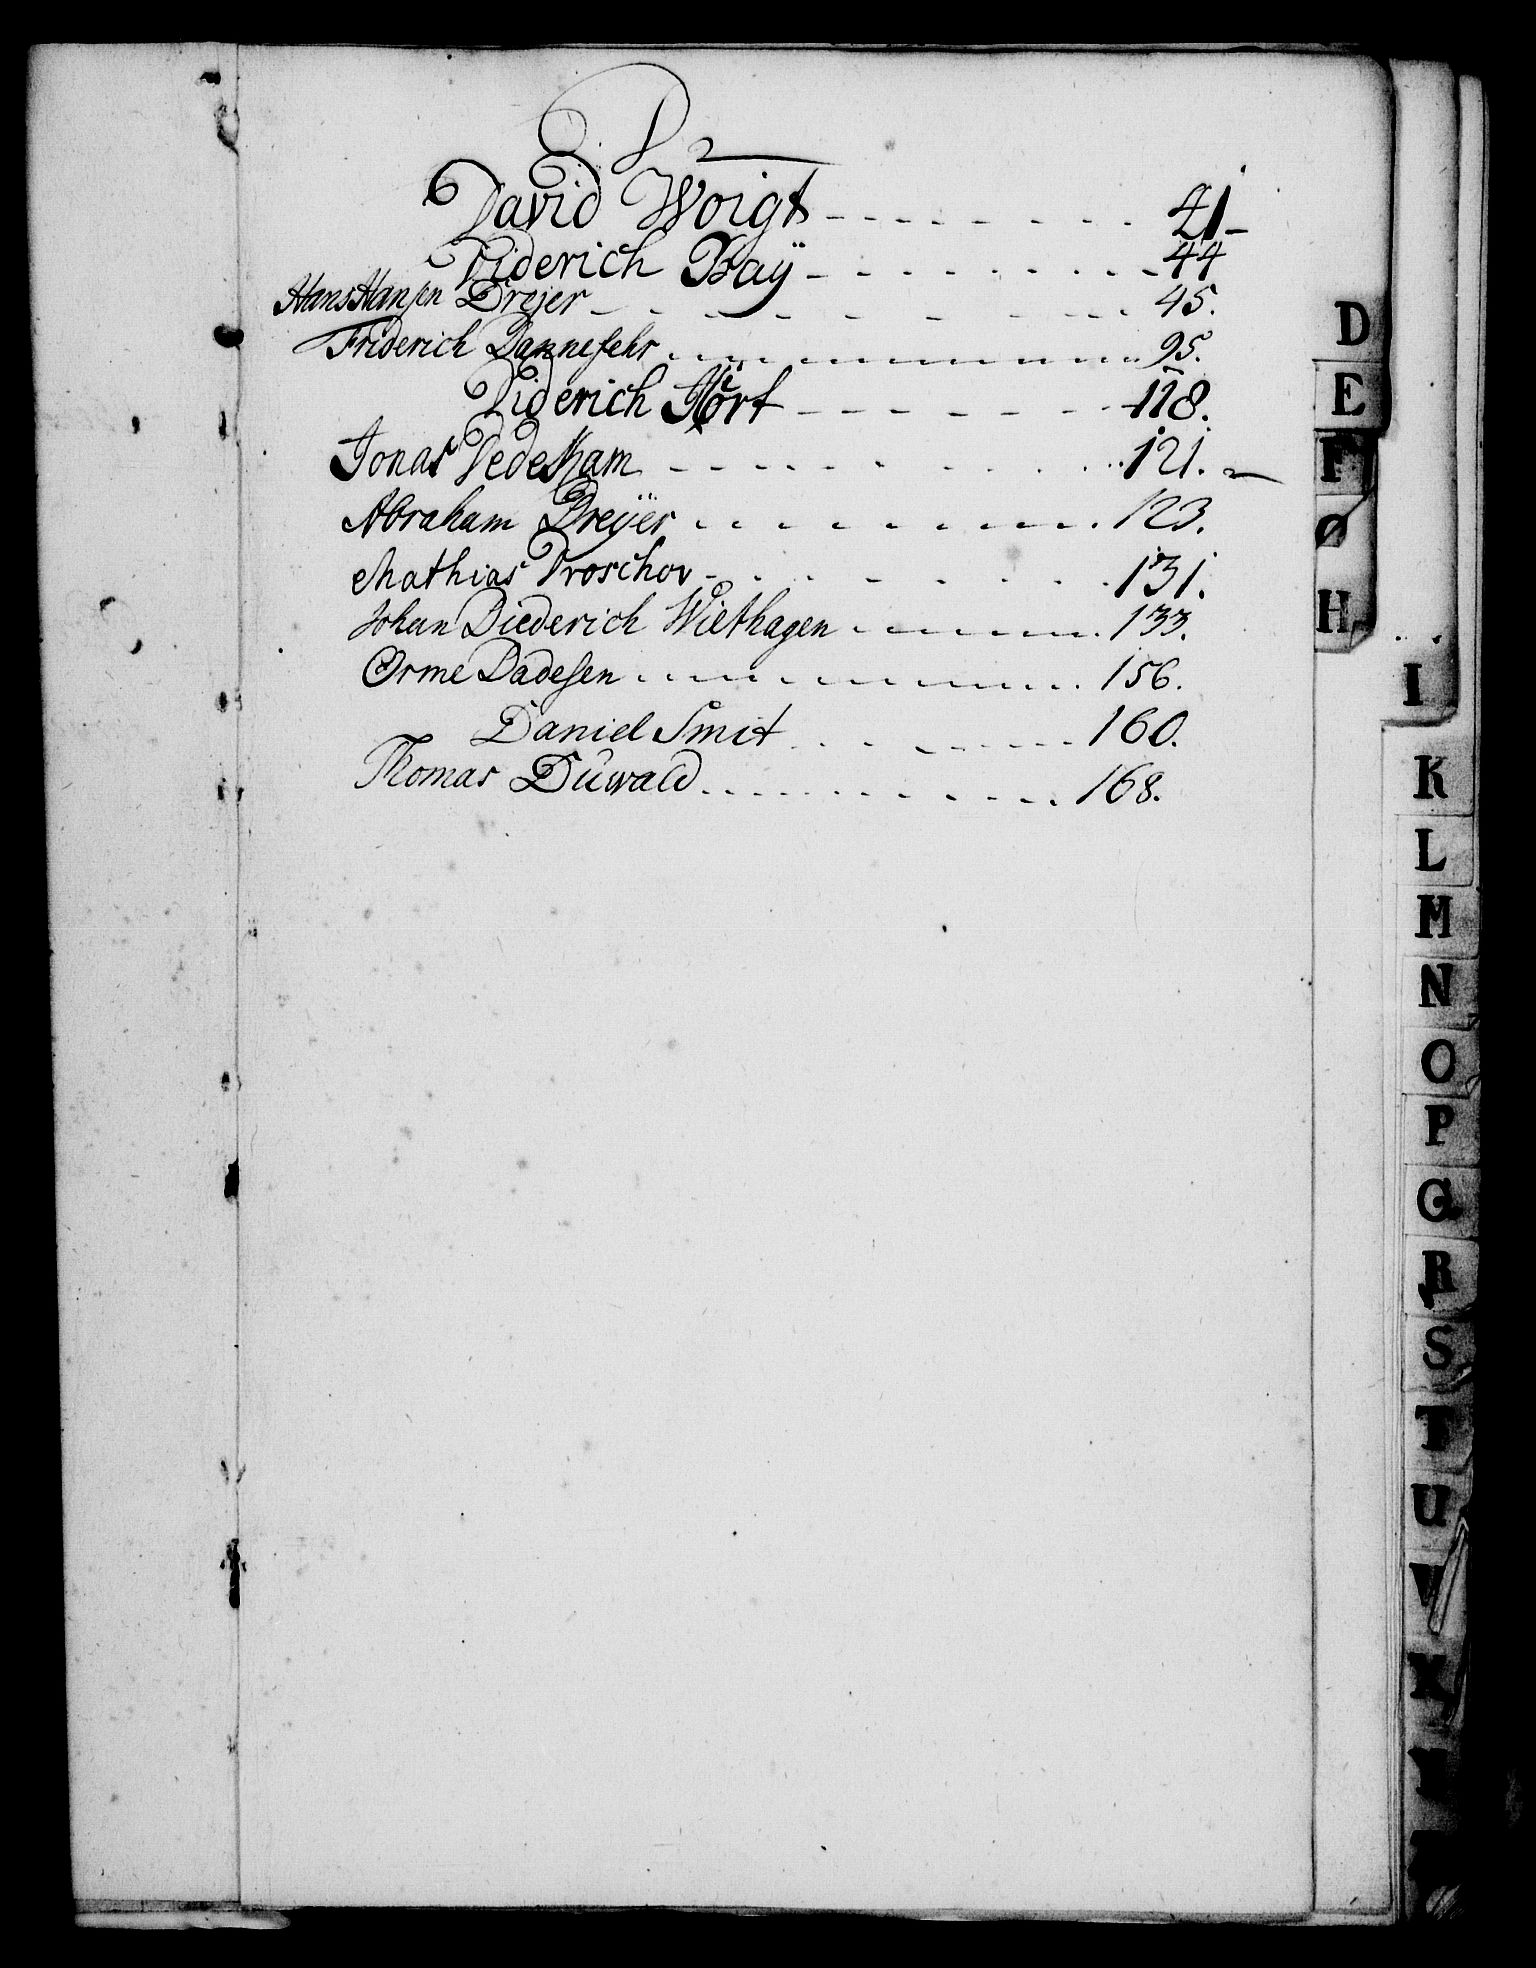 D
David Woigt - - - - - - - - 41 -
Diderich Baÿ - - - - - - - - 44
Hans Hansen Drejer - - - - - - - - 45.
Friderich Dannefehr - - - - - - - - 95.
Diderich - - - - - - 118.
Jonas Dedekam - - - - - - - - 121. -
Abraham Dreÿer - - - - - - - - 123.
Mathias Droschov - - - - - - - - 131.
Johan Diederich Wiethagen - - - - - - 133.
Orme Dadesen - - - - - - - - 156.
Daniel Smit - - - - - - - - 160.
Thomas Duwald - - - - - - - - 168.
D
E
F
Ø
H
I
K
L
M
N
O
P
Q
R
S
T
U
V
X